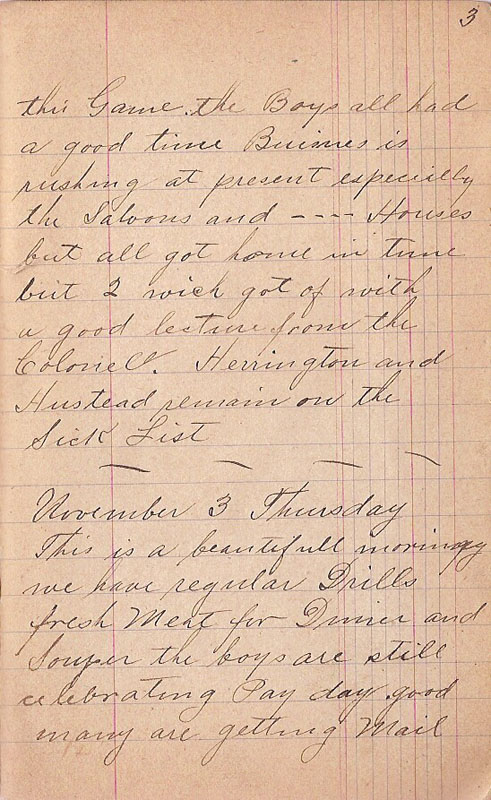 3
this Game. the Boys all had
a good time Buisnes is
rushing at present especially
the Saloons and ---- Houses
but all got home in time
but 2 wich got of with
a good lecture from the
Colonel. Herrington and
Hustead remain on the
Sick List
November 3 Thursday
This is a beautifull morning
we have regular Drills
fresh Meat for Dinner and
Souper the boys are still
celebrating Pay day. good
many are getting Mail